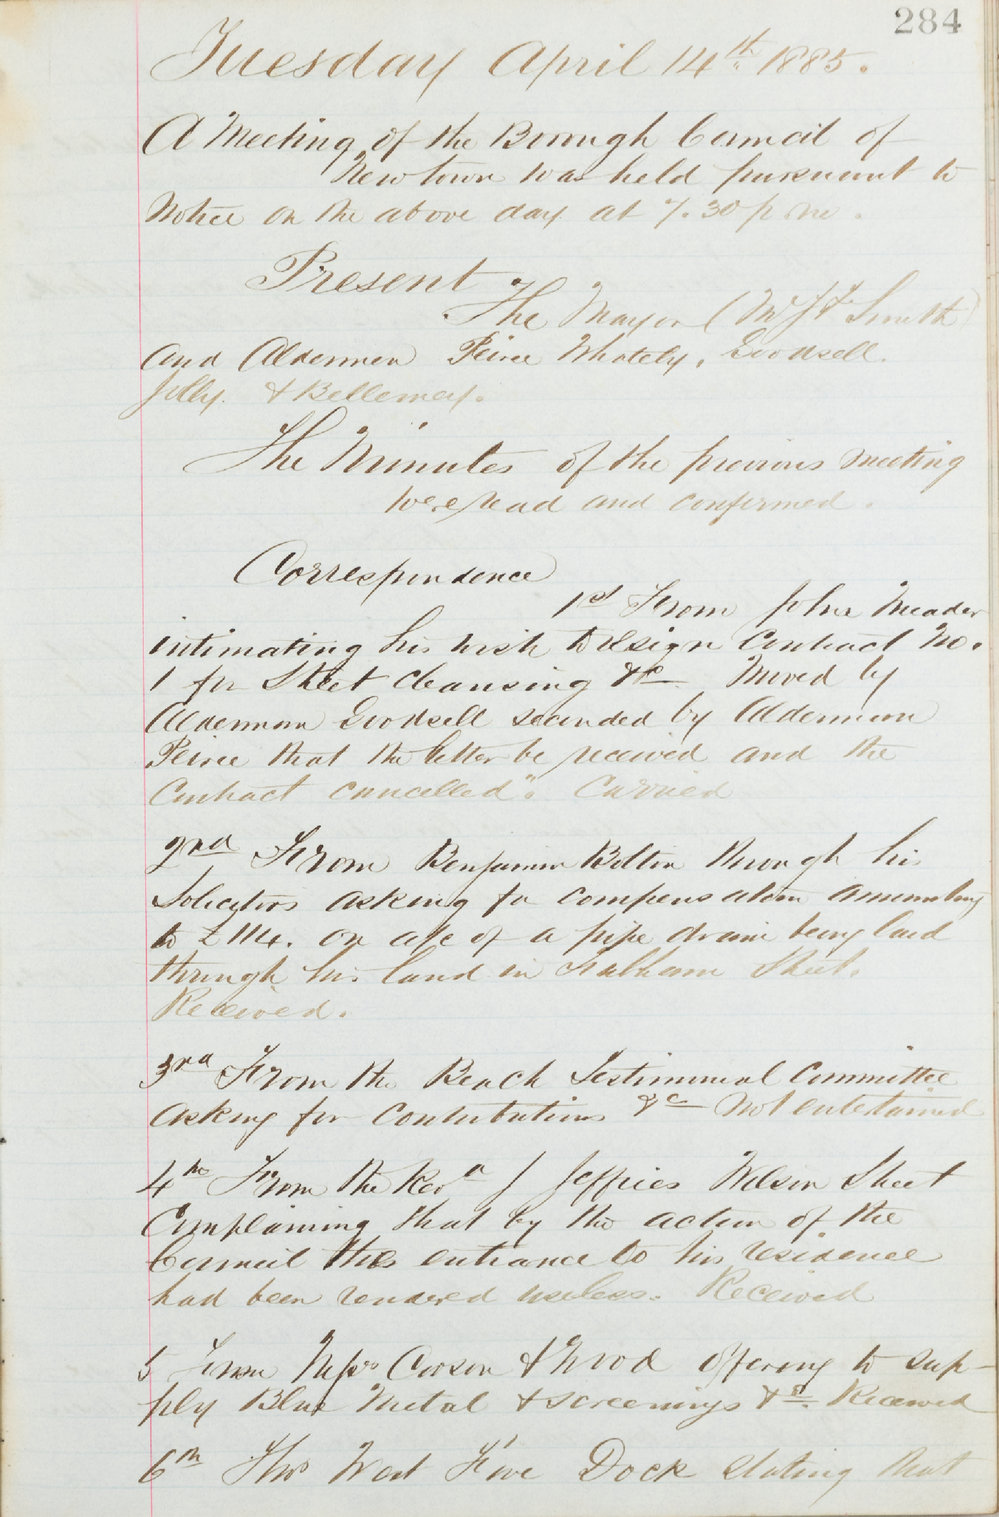 284
Tuesday April 14th 1885.
A Meeting of the Borough Council of
Newtown was held pursuant to
Notice on the above day at 7.30 p me.
Present
The Mayor (Mr J F Smith)
and Aldermen Peirce Whately, Goodsell.
Jolly. & Bellemey.
The Minutes of the previous meeting
were read and confirmed.
Correspondence
1st From John Meader
intimating his wish to resign Contract No.
1 for Street Cleansing &c Moved by
Alderman Goodsell seconded by Alderman
Peirce that the letter be received and the
Contract cancelled". Carried
2nd From Benjamin Bolton through his
Solicitors asking for compensation amounting
to £114. on a/c of a pipe drain being laid
through his land in Street.
Received.
3rd From the Beach Testimonial Committee
asking for Contributions &c Not entertained
4th From the Revd J Jeffries Wilson Street
Complaining that by the action of the
Council the entrance to his residence
had been rendered useless. Received
5 From Messrs Carson & Wood offering to sup-
ply Blue Metal & screenings &c. Received
6th Thos West Five Dock stating that